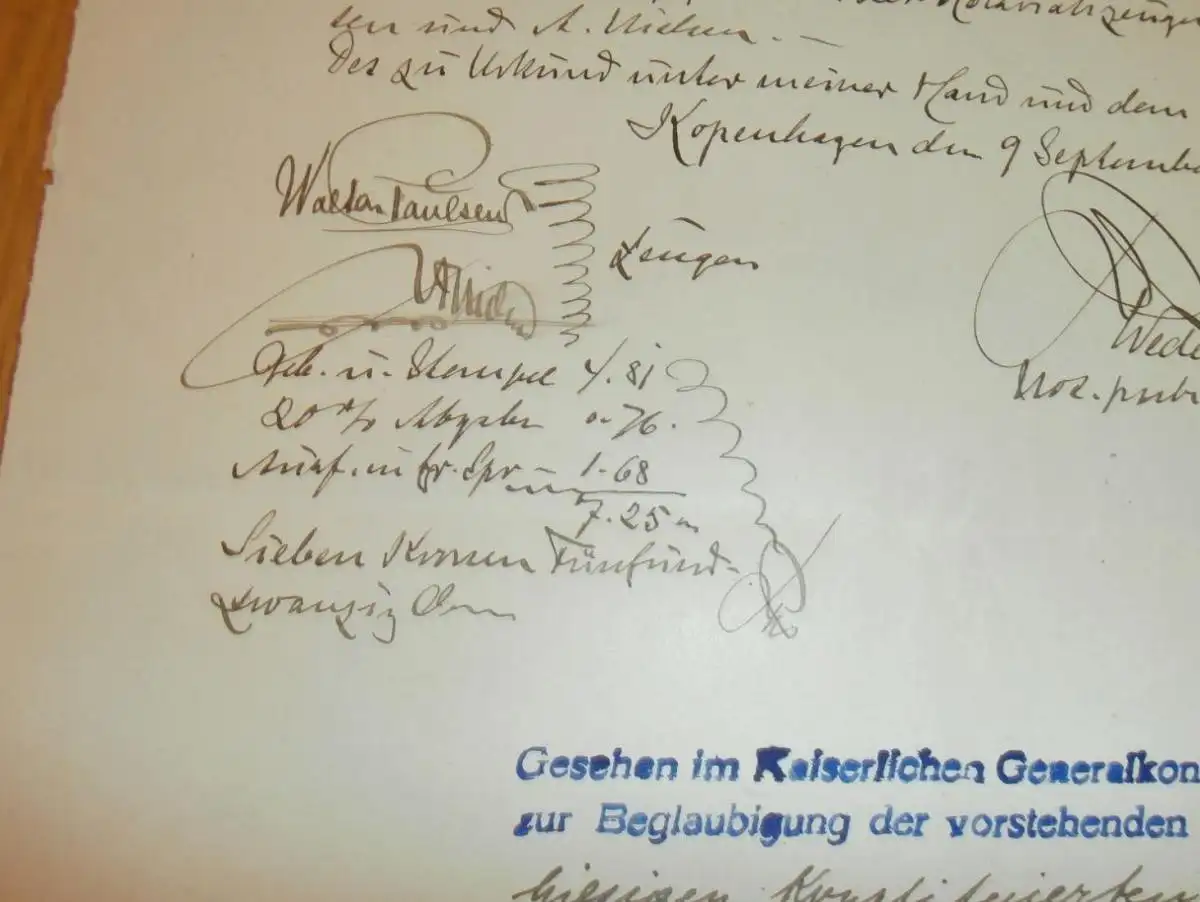 ten und A. Nielsen. —
Des zu Urkund unter meiner Hand und dem
Kopenhagen den 9 Septembe
Walter Paulsen
Zeugen
A Nielsen
Wede
Not. publ
Geb. u. Stempel 4.81
20 % Abgabe 0.76.
Ausf. in fr. Spr. – 1.68
7.25
Sieben Kronen Fünfund-
zwanzig Öre
Gesehen im Kaiserlichen Generalkon
zur Beglaubigung der vorstehenden
hiesigen Konstituierten